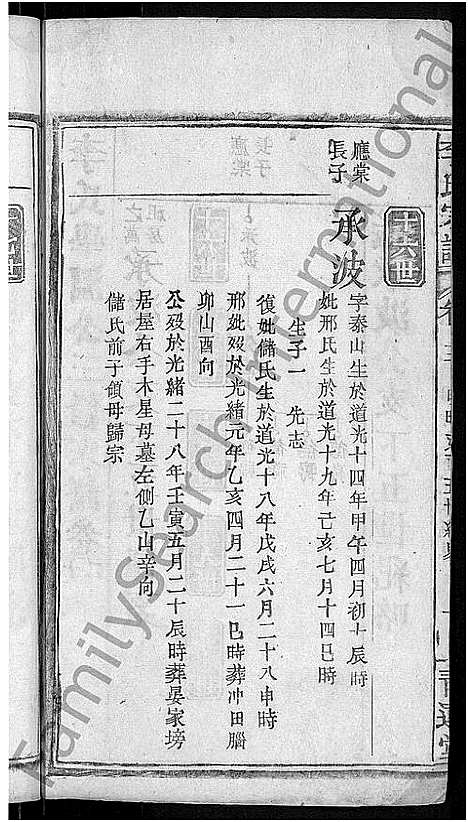 李氏宗譜
十六世
應棠長子
承波
字泰山生於道光十四年甲午四月初十辰時
妣邢氏生於道光十九年己亥七月十四巳時
生子一 先志
復妣儲氏生於道光十八年戊戌六月二十八申時
邢妣歿於光緒元年乙亥四月二十一巳時葬冲田腦
卯山酉向
公歿於光緒二十八年壬寅五月二十辰時葬晏家塝
居屋右手木星母墓左側乙山辛向
儲氏前子領母歸宗
FamilySearch International